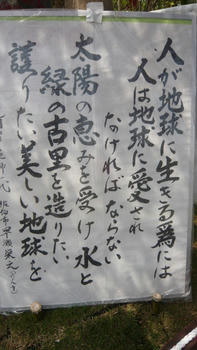 人が地球に生きる為には
人は地球に愛され
なければならない
太陽の恵みを受け水と
緑の古里を造りたい
護りたい美しい地球を